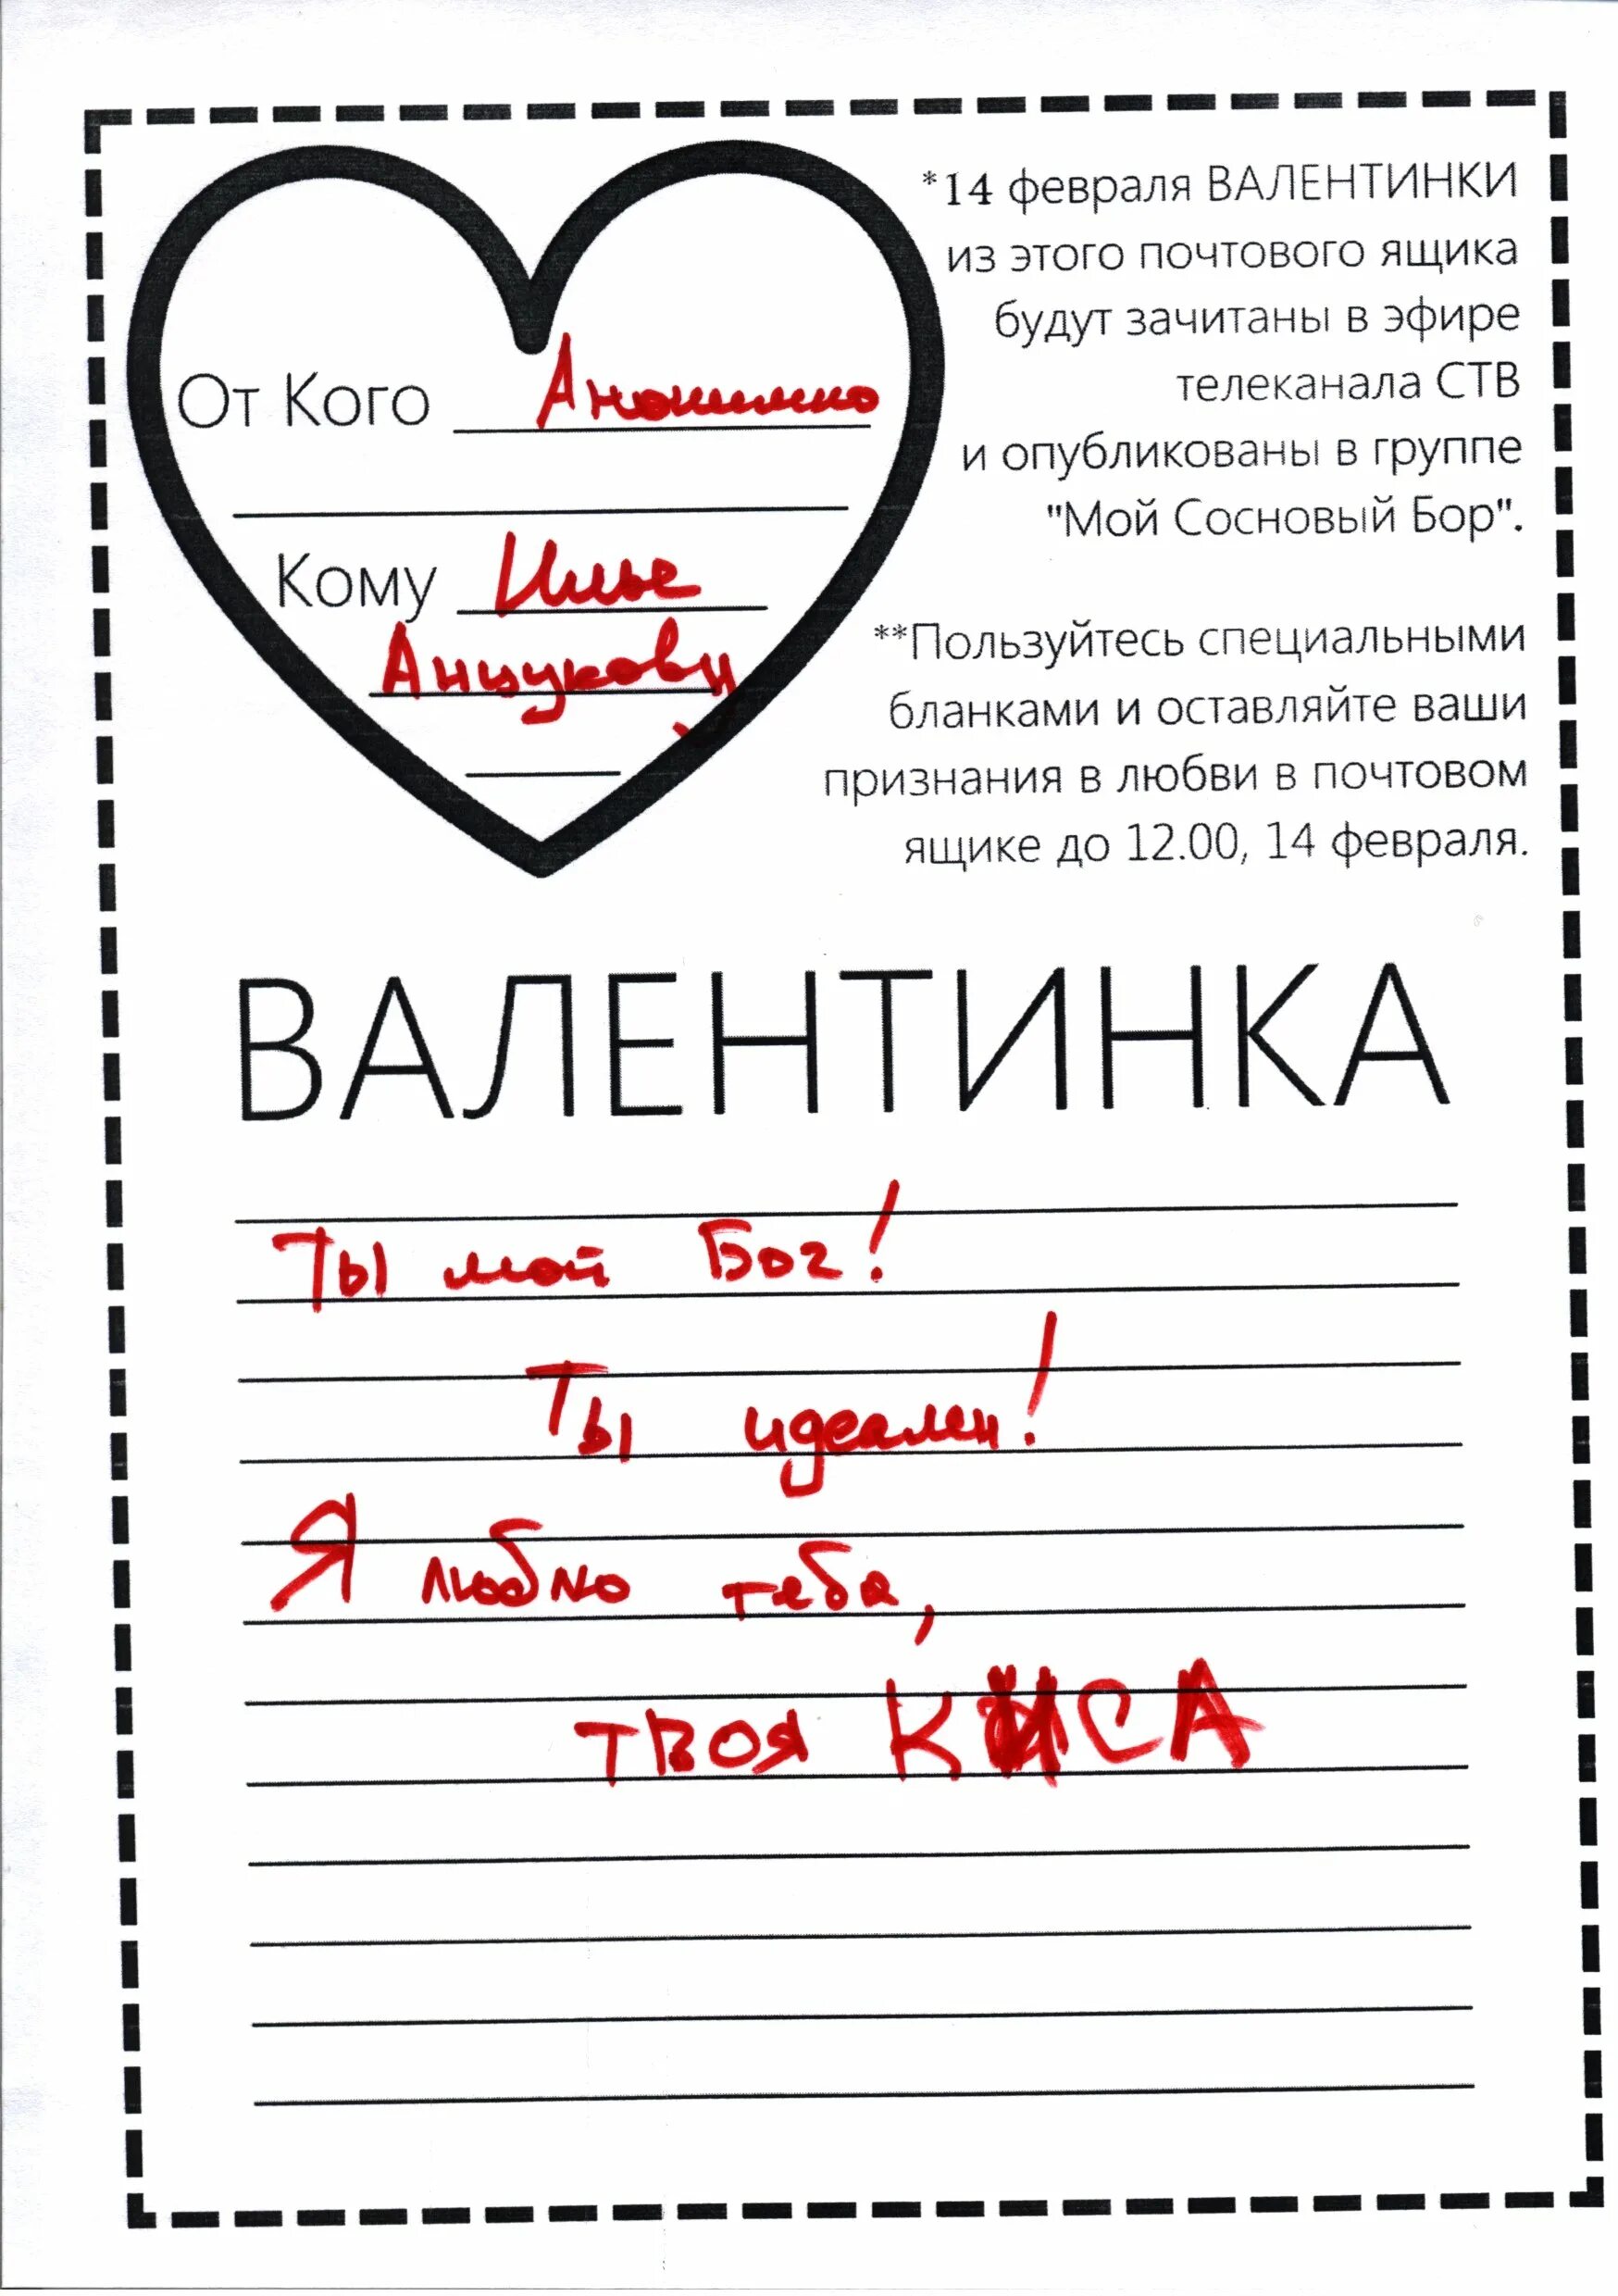 От Кого Анонимно
Кому Илье
Анцукову
*14 февраля ВАЛЕНТИНКИ
из этого почтового ящика
будут зачитаны в эфире
телеканала СТВ
и опубликованы в группе
"Мой Сосновый Бор".
**Пользуйтесь специальными
бланками и оставляйте ваши
признания в любви в почтовом
ящике до 12.00, 14 февраля.
ВАЛЕНТИНКА
Ты мой Бог!
Ты идеален!
Я люблю тебя,
твоя КИСА